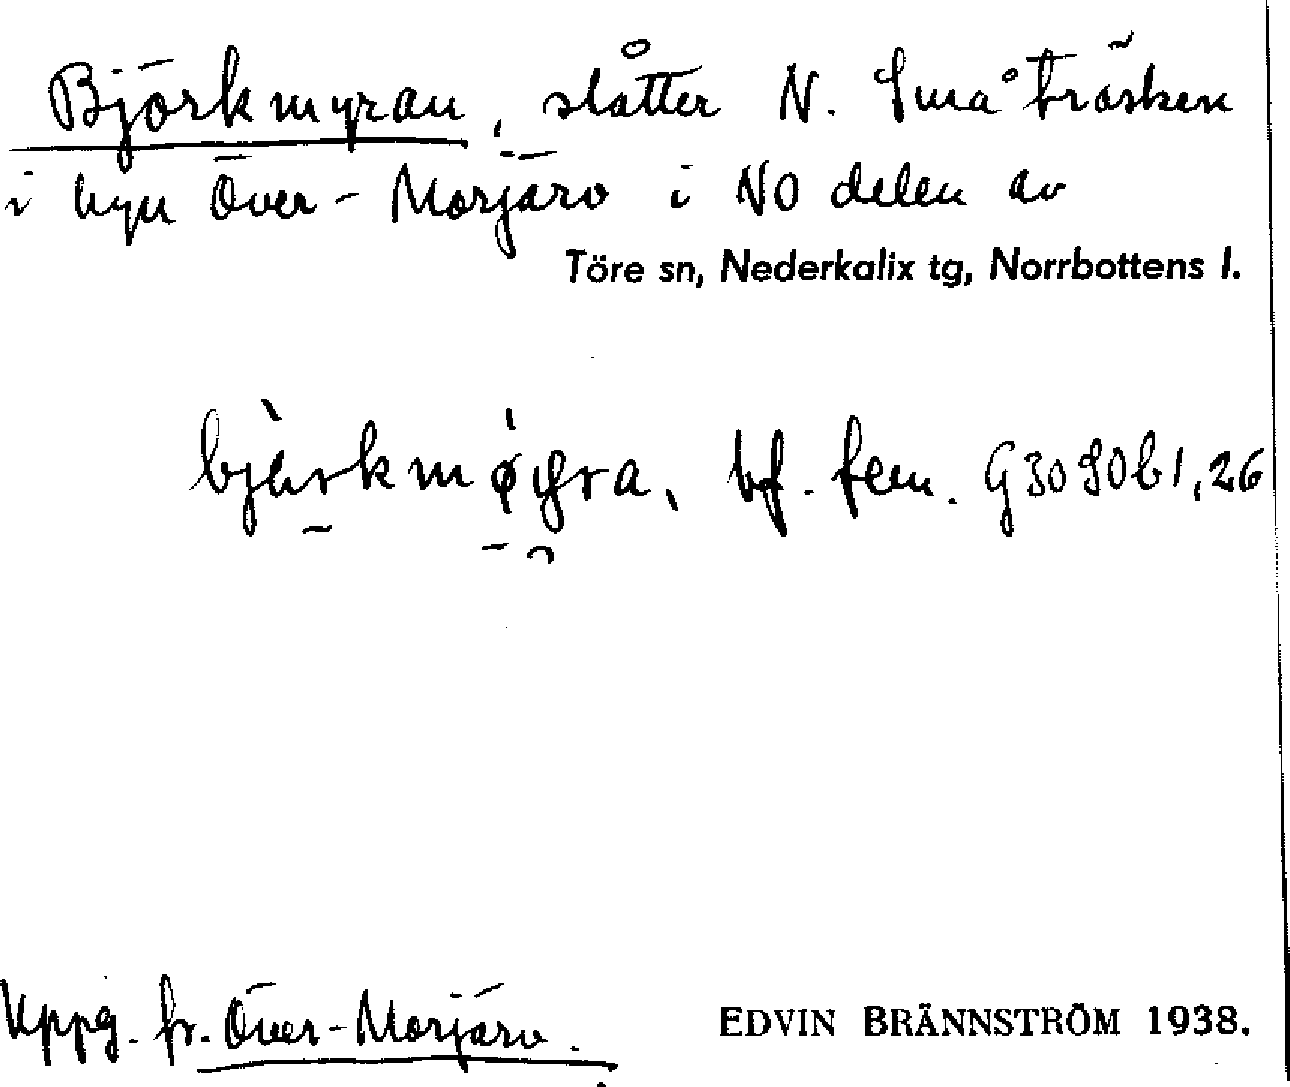 Björkmyran, slåtter N. Småträsken
i byn Över-Morjärv i NO delen av
Töre sn, Nederkalix tg, Norrbottens l.
bf. fem. G3090b1,26
Uppg. fr. Över-Morjärv.
EDVIN BRÄNNSTRÖM 1938.